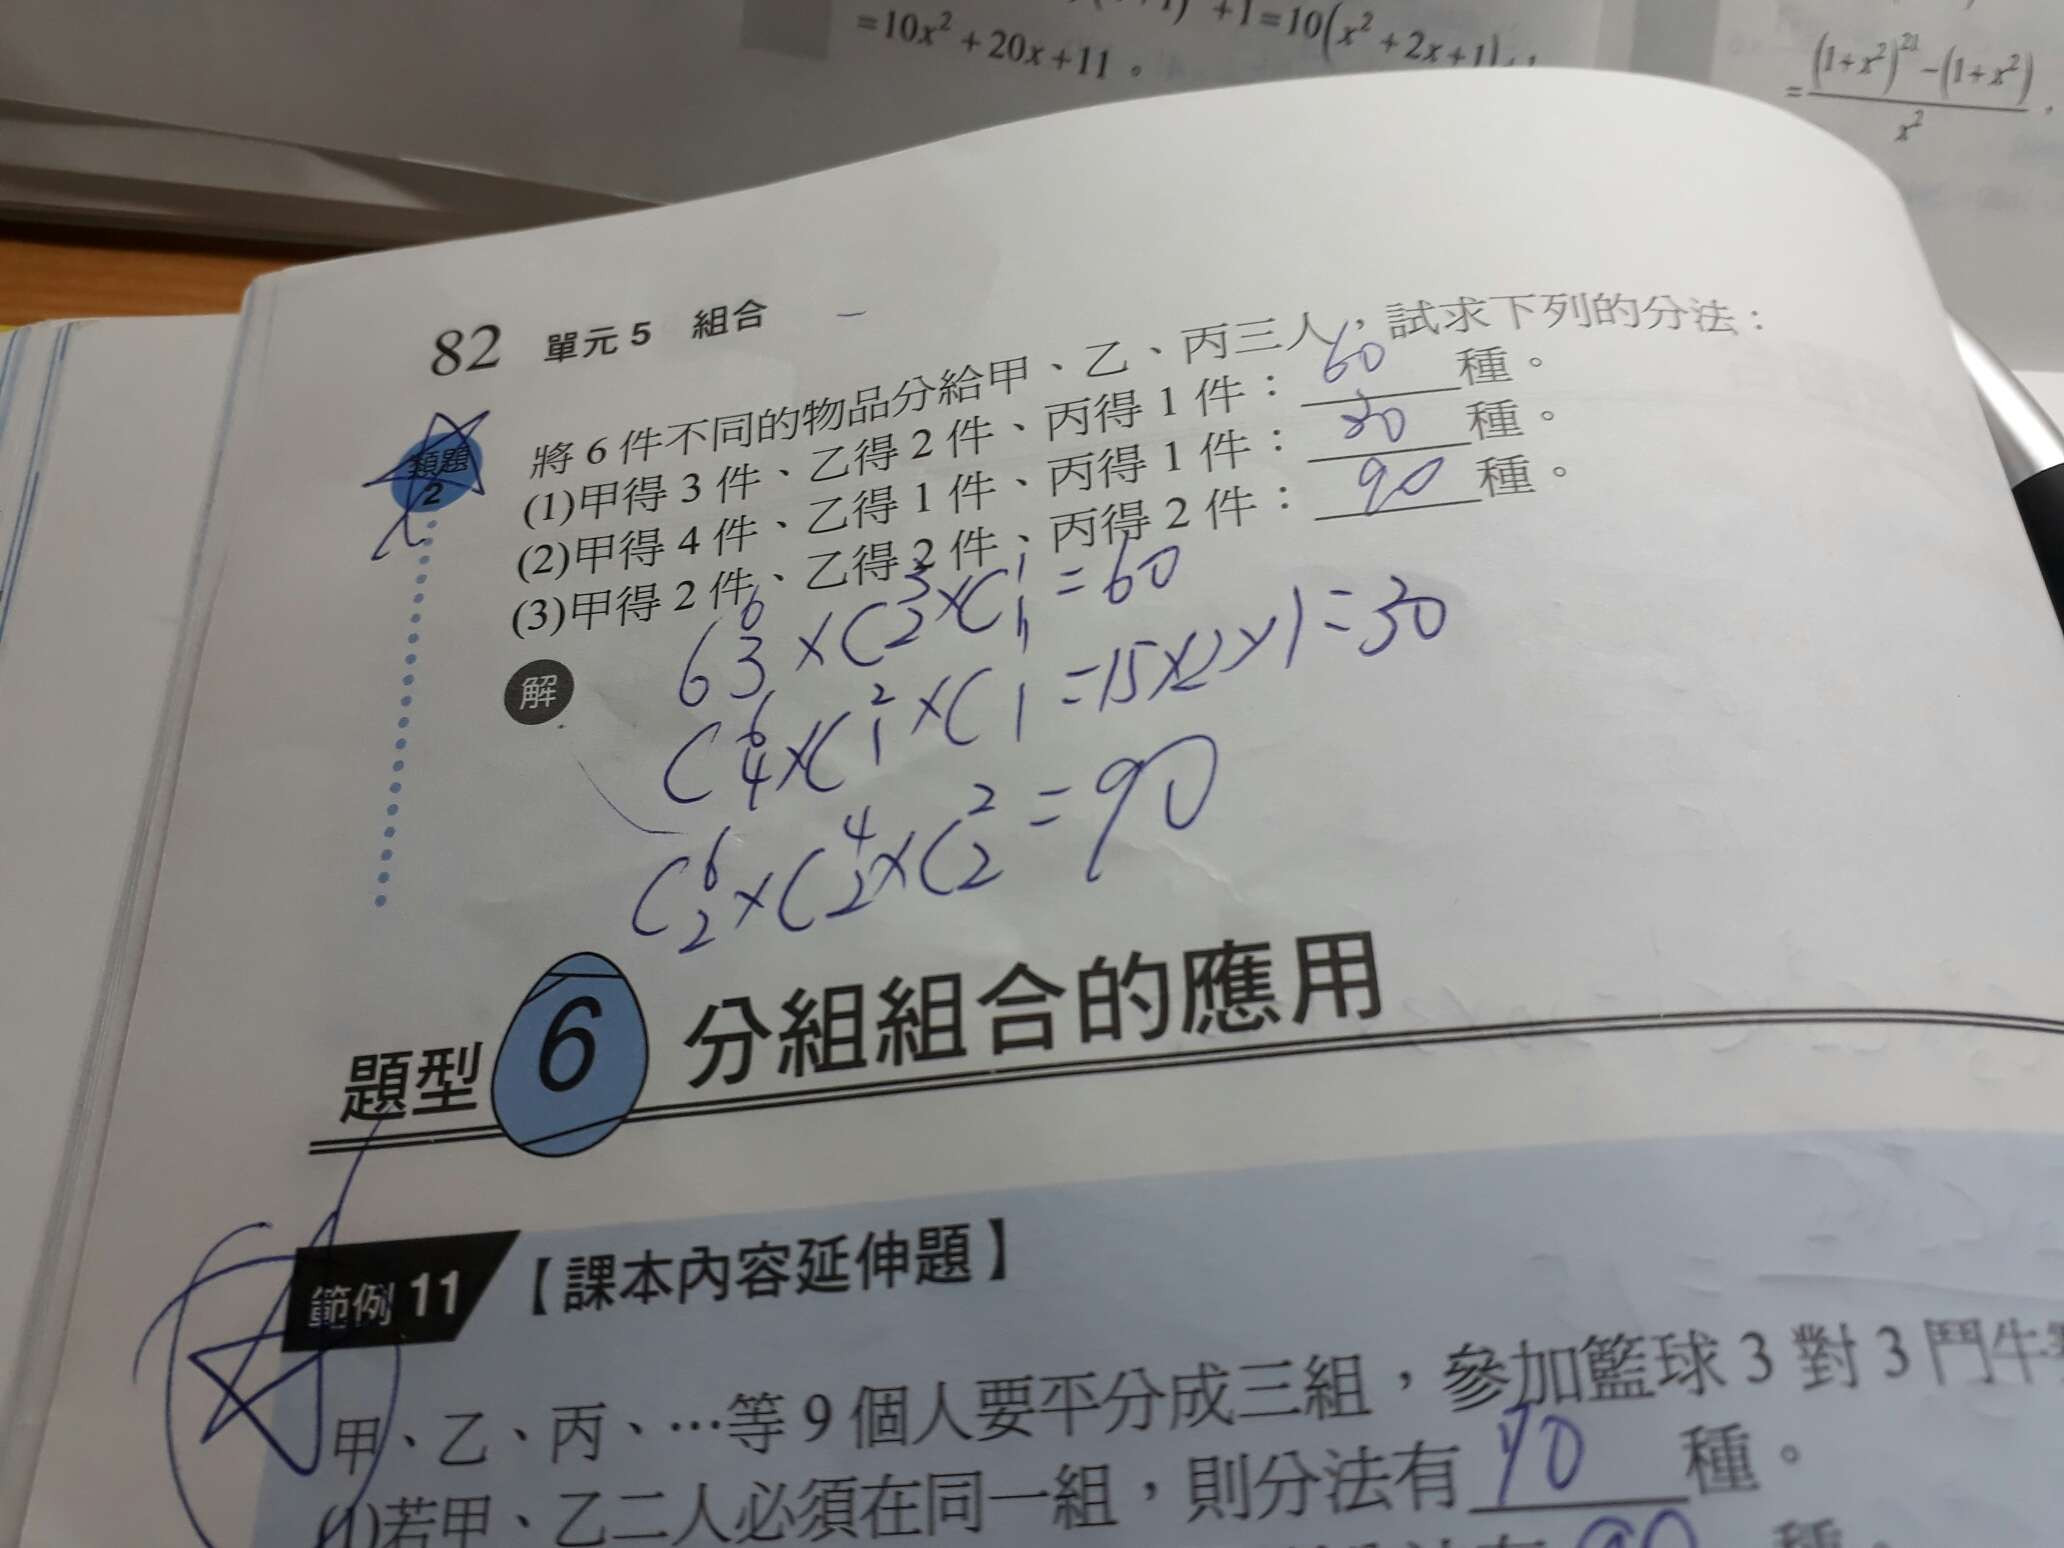 +1=10(x²+2x+1)
=10x²+20x+11。
=((1+x²)²¹-(1+x²))/x²,
82 單元5 組合
類題2
將6件不同的物品分給甲、乙、丙三人,試求下列的分法:
(1)甲得3件、乙得2件、丙得1件:60種。
(2)甲得4件、乙得1件、丙得1件:30種。
(3)甲得2件、乙得2件、丙得2件:90種。
解
C⁶₃×C³₂×C¹₁=60
C⁶₄×C²₁×C¹₁=15×2×1=30
C⁶₂×C⁴₂×C²₂=90
題型6 分組組合的應用
範例11【課本內容延伸題】
甲、乙、丙、…等9個人要平分成三組,參加籃球3對3鬥牛
(1)若甲、乙二人必須在同一組,則分法有70種。
種。